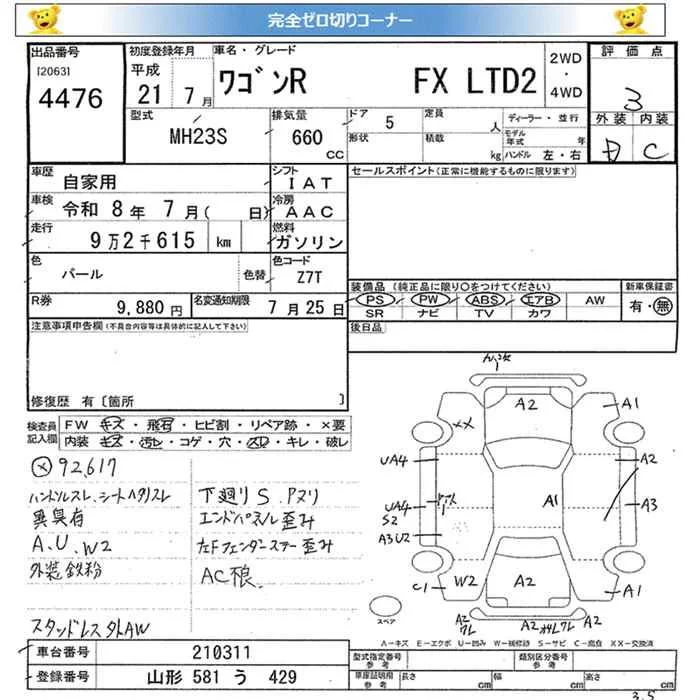 完全ゼロ切りコーナー
出品番号
[2063]
4476
初度登録年月
平成
21 7月
車名・グレード
ワゴンR FX LTD2
2WD
・
4WD
評価点
3
外装 内装
C
型式
MH23S
排気量
660
CC
ドア 5
形状
定員
人
積載
kg
ディーラー・並行
モデル
年式 年
ハンドル 左・右
車歴 自家用
シフト
IAT
車検 令和 8年 7月( 日)
冷房
AAC
走行
9万2千615 km
燃料
ガソリン
色
パール
色替
色コード
Z7T
R券
9,880円
名変通知期限
7月25日
セールスポイント(正常に機能するものに限ります)
装備品 (純正品に限り○をつけてください)
新車保証書
PS PW ABS エアB AW
SR ナビ TV カワ
有・無
後日品
注意事項申告欄(不具合内容等は具体的に記入して下さい)
修復歴 有〔箇所 〕
検査員
記入欄
FW キズ・飛石・ヒビ割・リペア跡・×要
内装 キズ・汚れ・コゲ・穴・スレ・キレ・破レ
ⓧ92,617
ハンドルスレ、シートヘタリスレ
異臭有
A.U.W2
外装鉄粉
スタッドレス外AW
下廻りS.アヌリ
エンドパネル歪み
左Fフェンダーステー歪み
AC腐
A2
A1
XX
UA4
A2
UA4
S2
A1
A3
A3U2
C1
W2
A2
A1
A2
A2
A2
スペア
A-キズ E-エクボ U-凹み W-補修跡 S-サビ C-腐食 XX-交換済
車台番号 210311
登録番号 山形 581 う 429
型式指定番号
参考
類別区分番号
参考
車庫証明用
参考
長さ cm
幅 cm
高さ cm
3.5